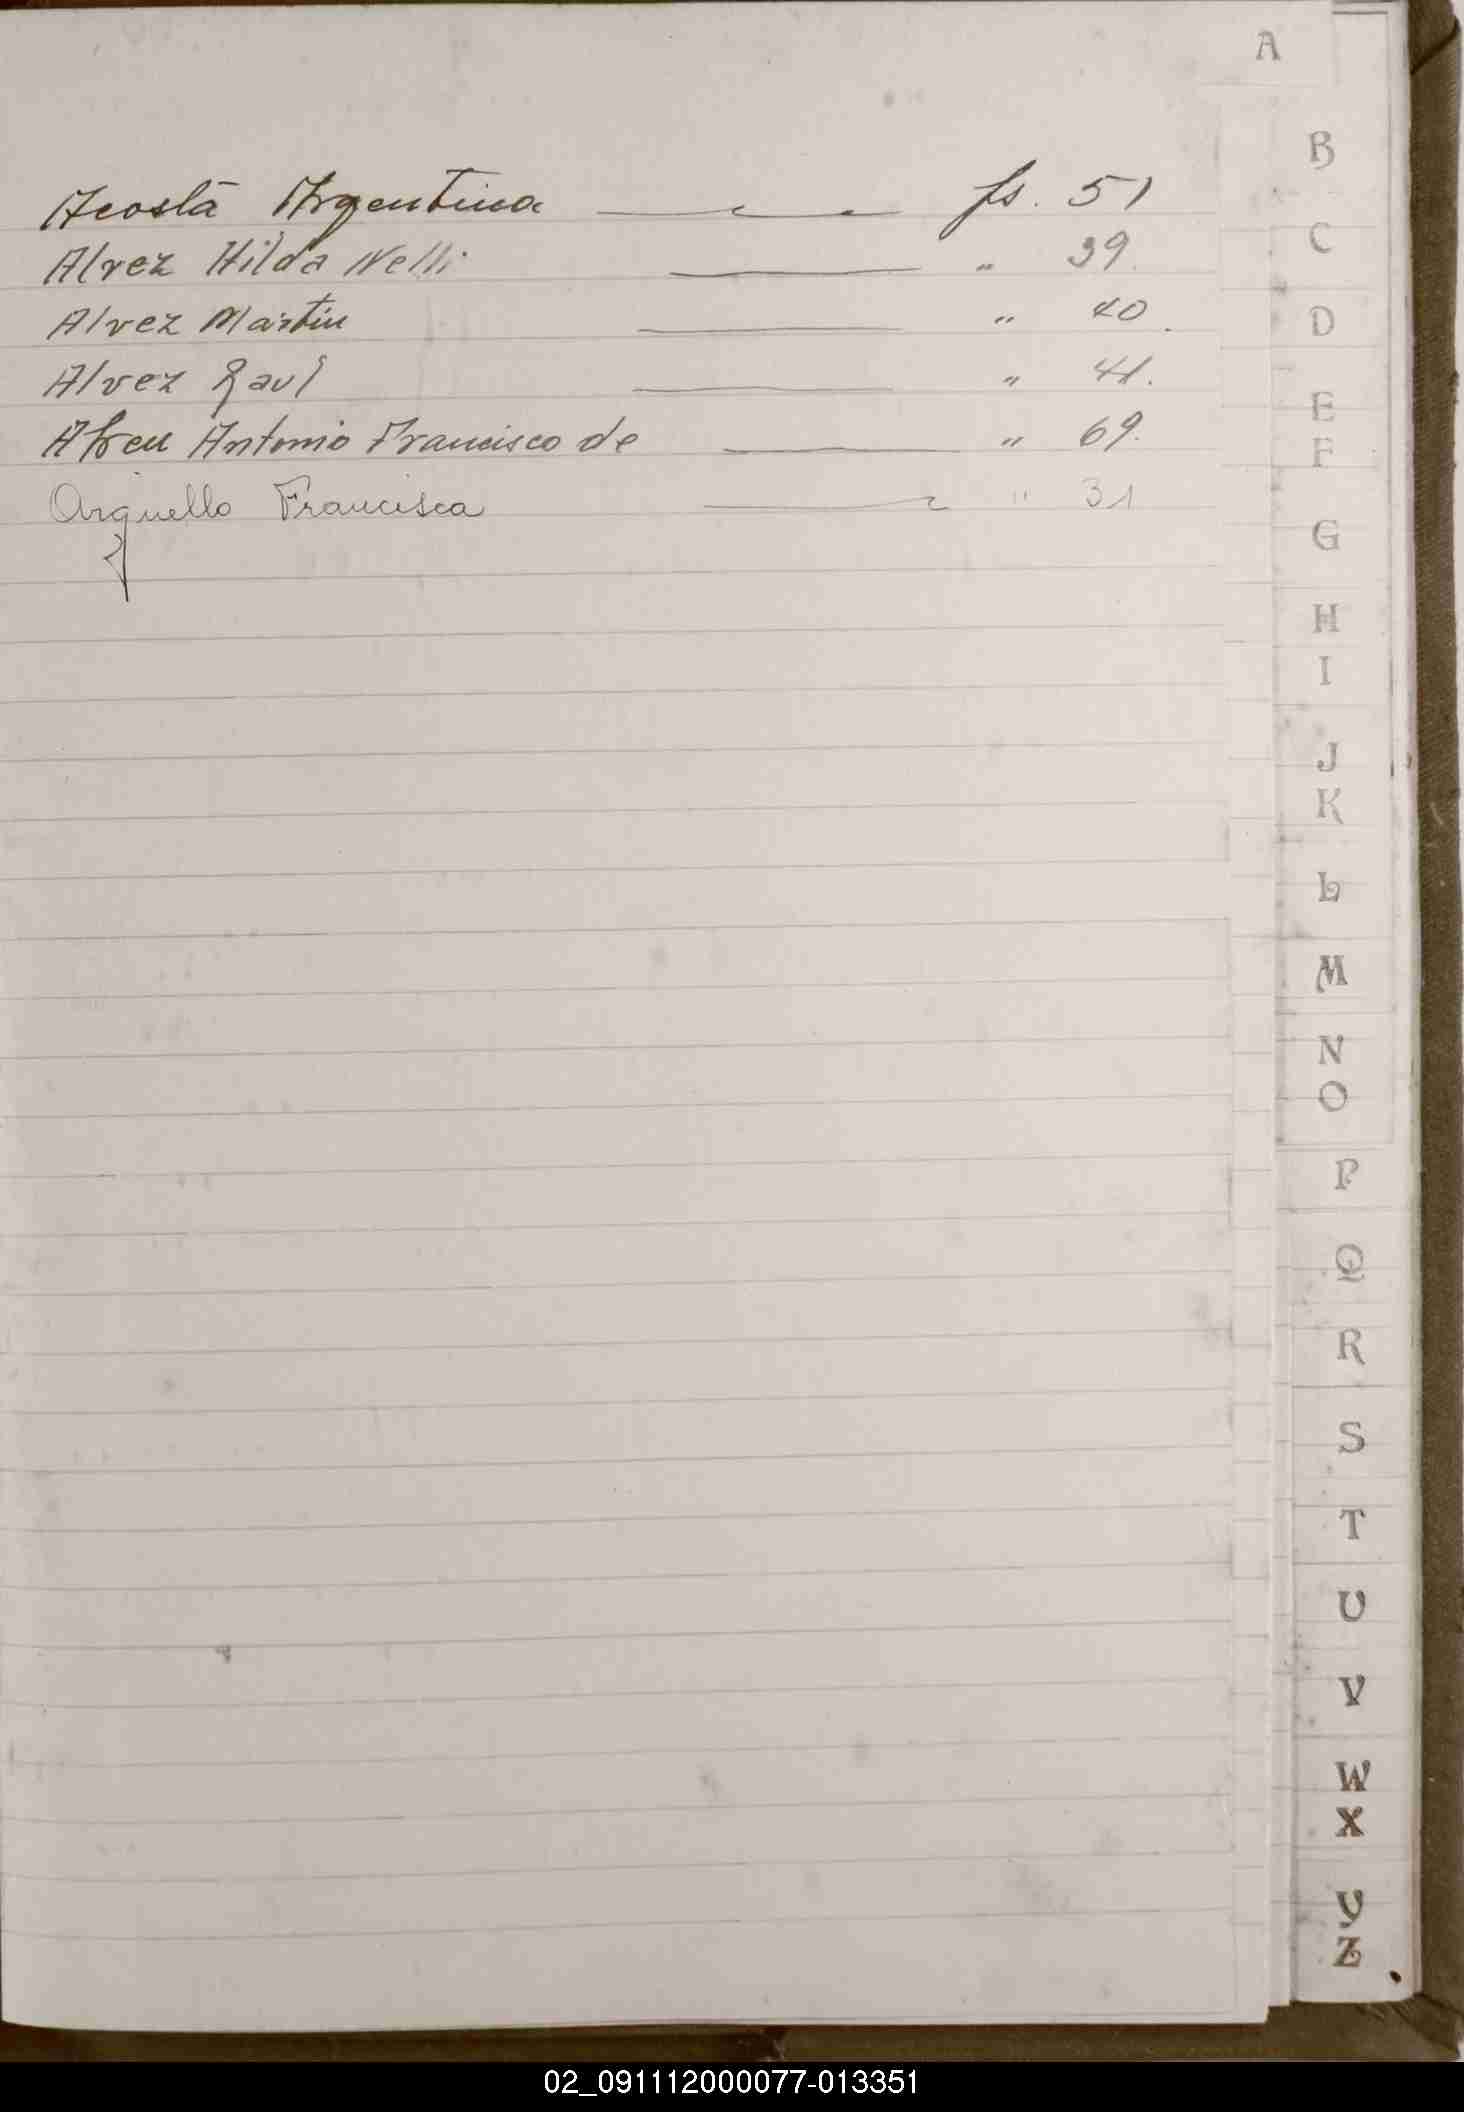 A
Acosta Argentina fs. 51
Alvez Hilda Nelli " 39.
Alvez Martin " 40.
Alvez Raul " 41.
Abreu Antonio Francisco de " 69.
Arguello Francisca " 31
B
C
D
E
F
G
H
I
J
K
L
M
N
O
P
Q
R
S
T
U
V
W
X
Y
Z
02_091112000077-013351